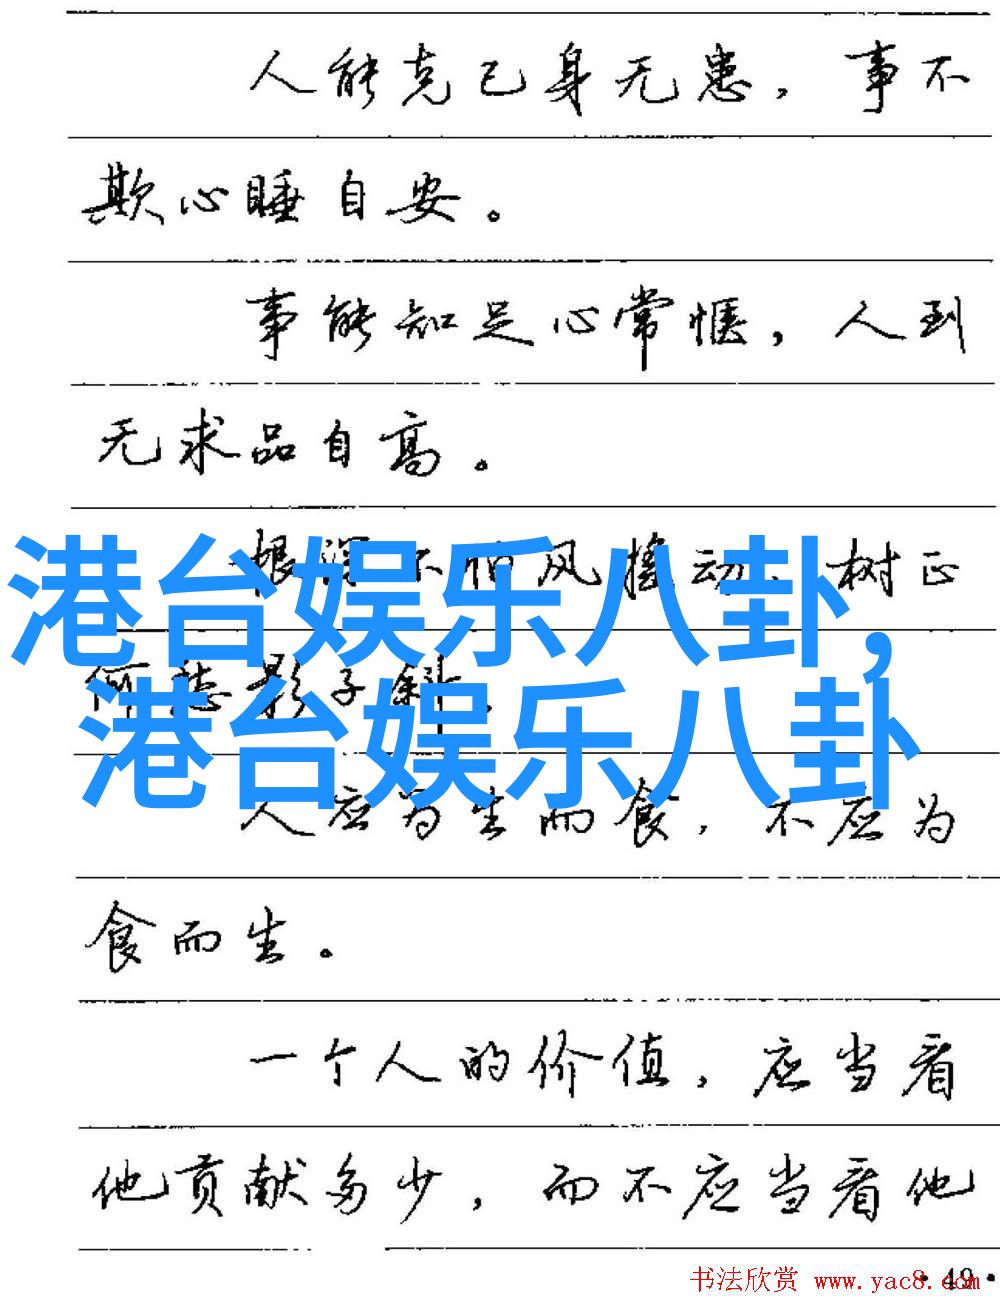 人能克己身无患，事不
欺心睡自安。
事能知足心常惬，人到
无求品自高。
根深不怕风摇动，树正
何愁影子斜。
港台娱乐八卦，
港台娱乐八卦
人应为生而食，不应为
食而生。
一个人的价值，应当看
他贡献多少，而不应当看他
·49·
书法欣赏 www.yac8.com